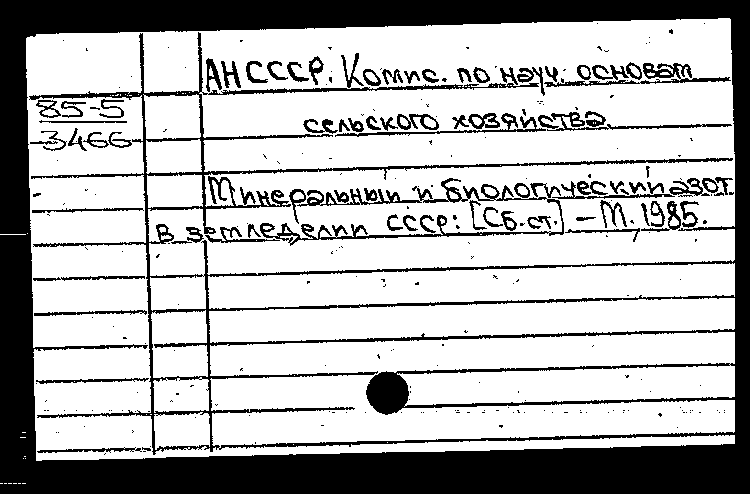 АН СССР. Комис. по науч. основам
85-5
3466
сельского хозяйства.
Минеральный и биологический азот
в земледелии СССР: [Сб.ст.] – М. 1985.